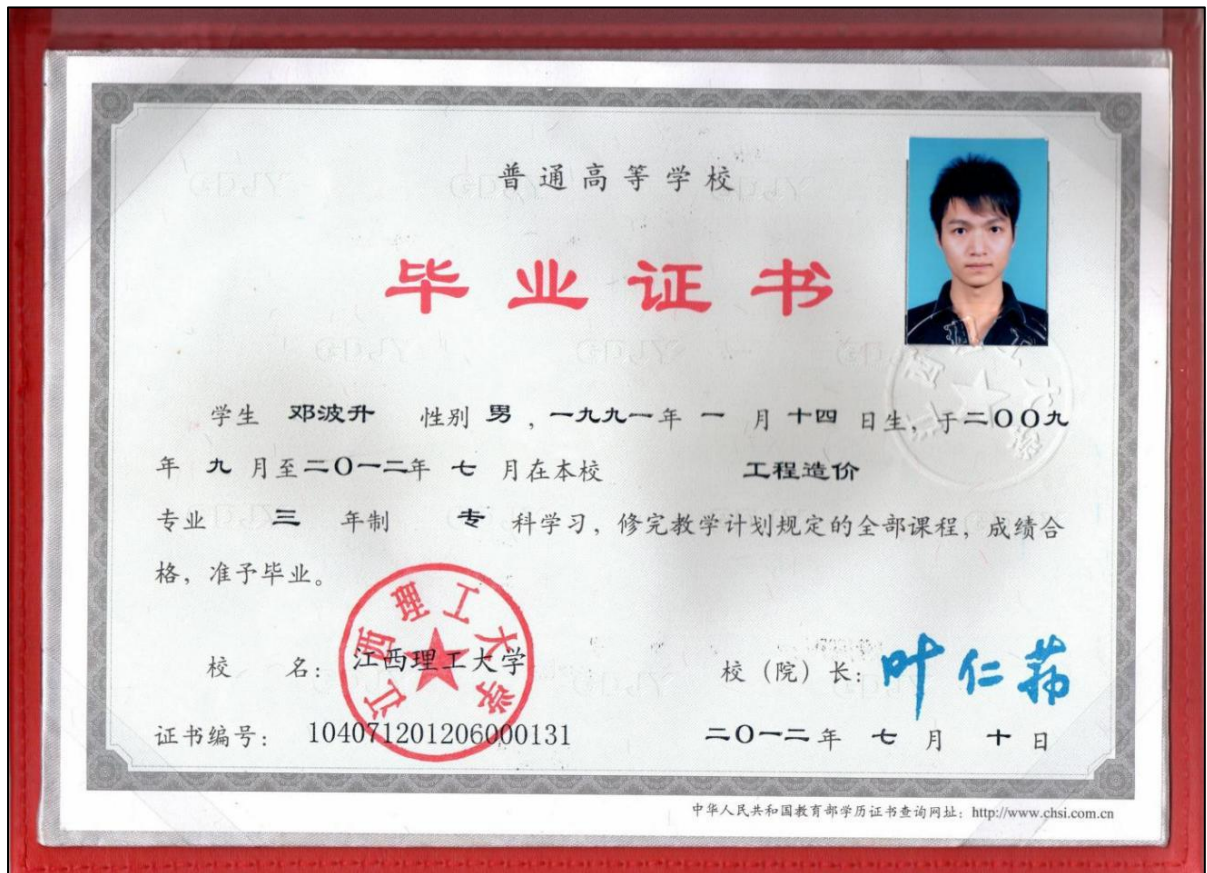 普通高等学校
毕业证书
学生 邓波升 性别 男,一九九一年 一 月 十四 日生,于二〇〇九
年 九 月至二〇一二年 七 月在本校 工程造价
专业 三 年制 专 科学习,修完教学计划规定的全部课程,成绩合
格,准予毕业。
江西理工大学
校 名:江西理工大学 校(院)长:叶仁荪
证书编号: 104071201206000131 二〇一二年 七 月 十 日
中华人民共和国教育部学历证书查询网址:http://www.chsi.com.cn